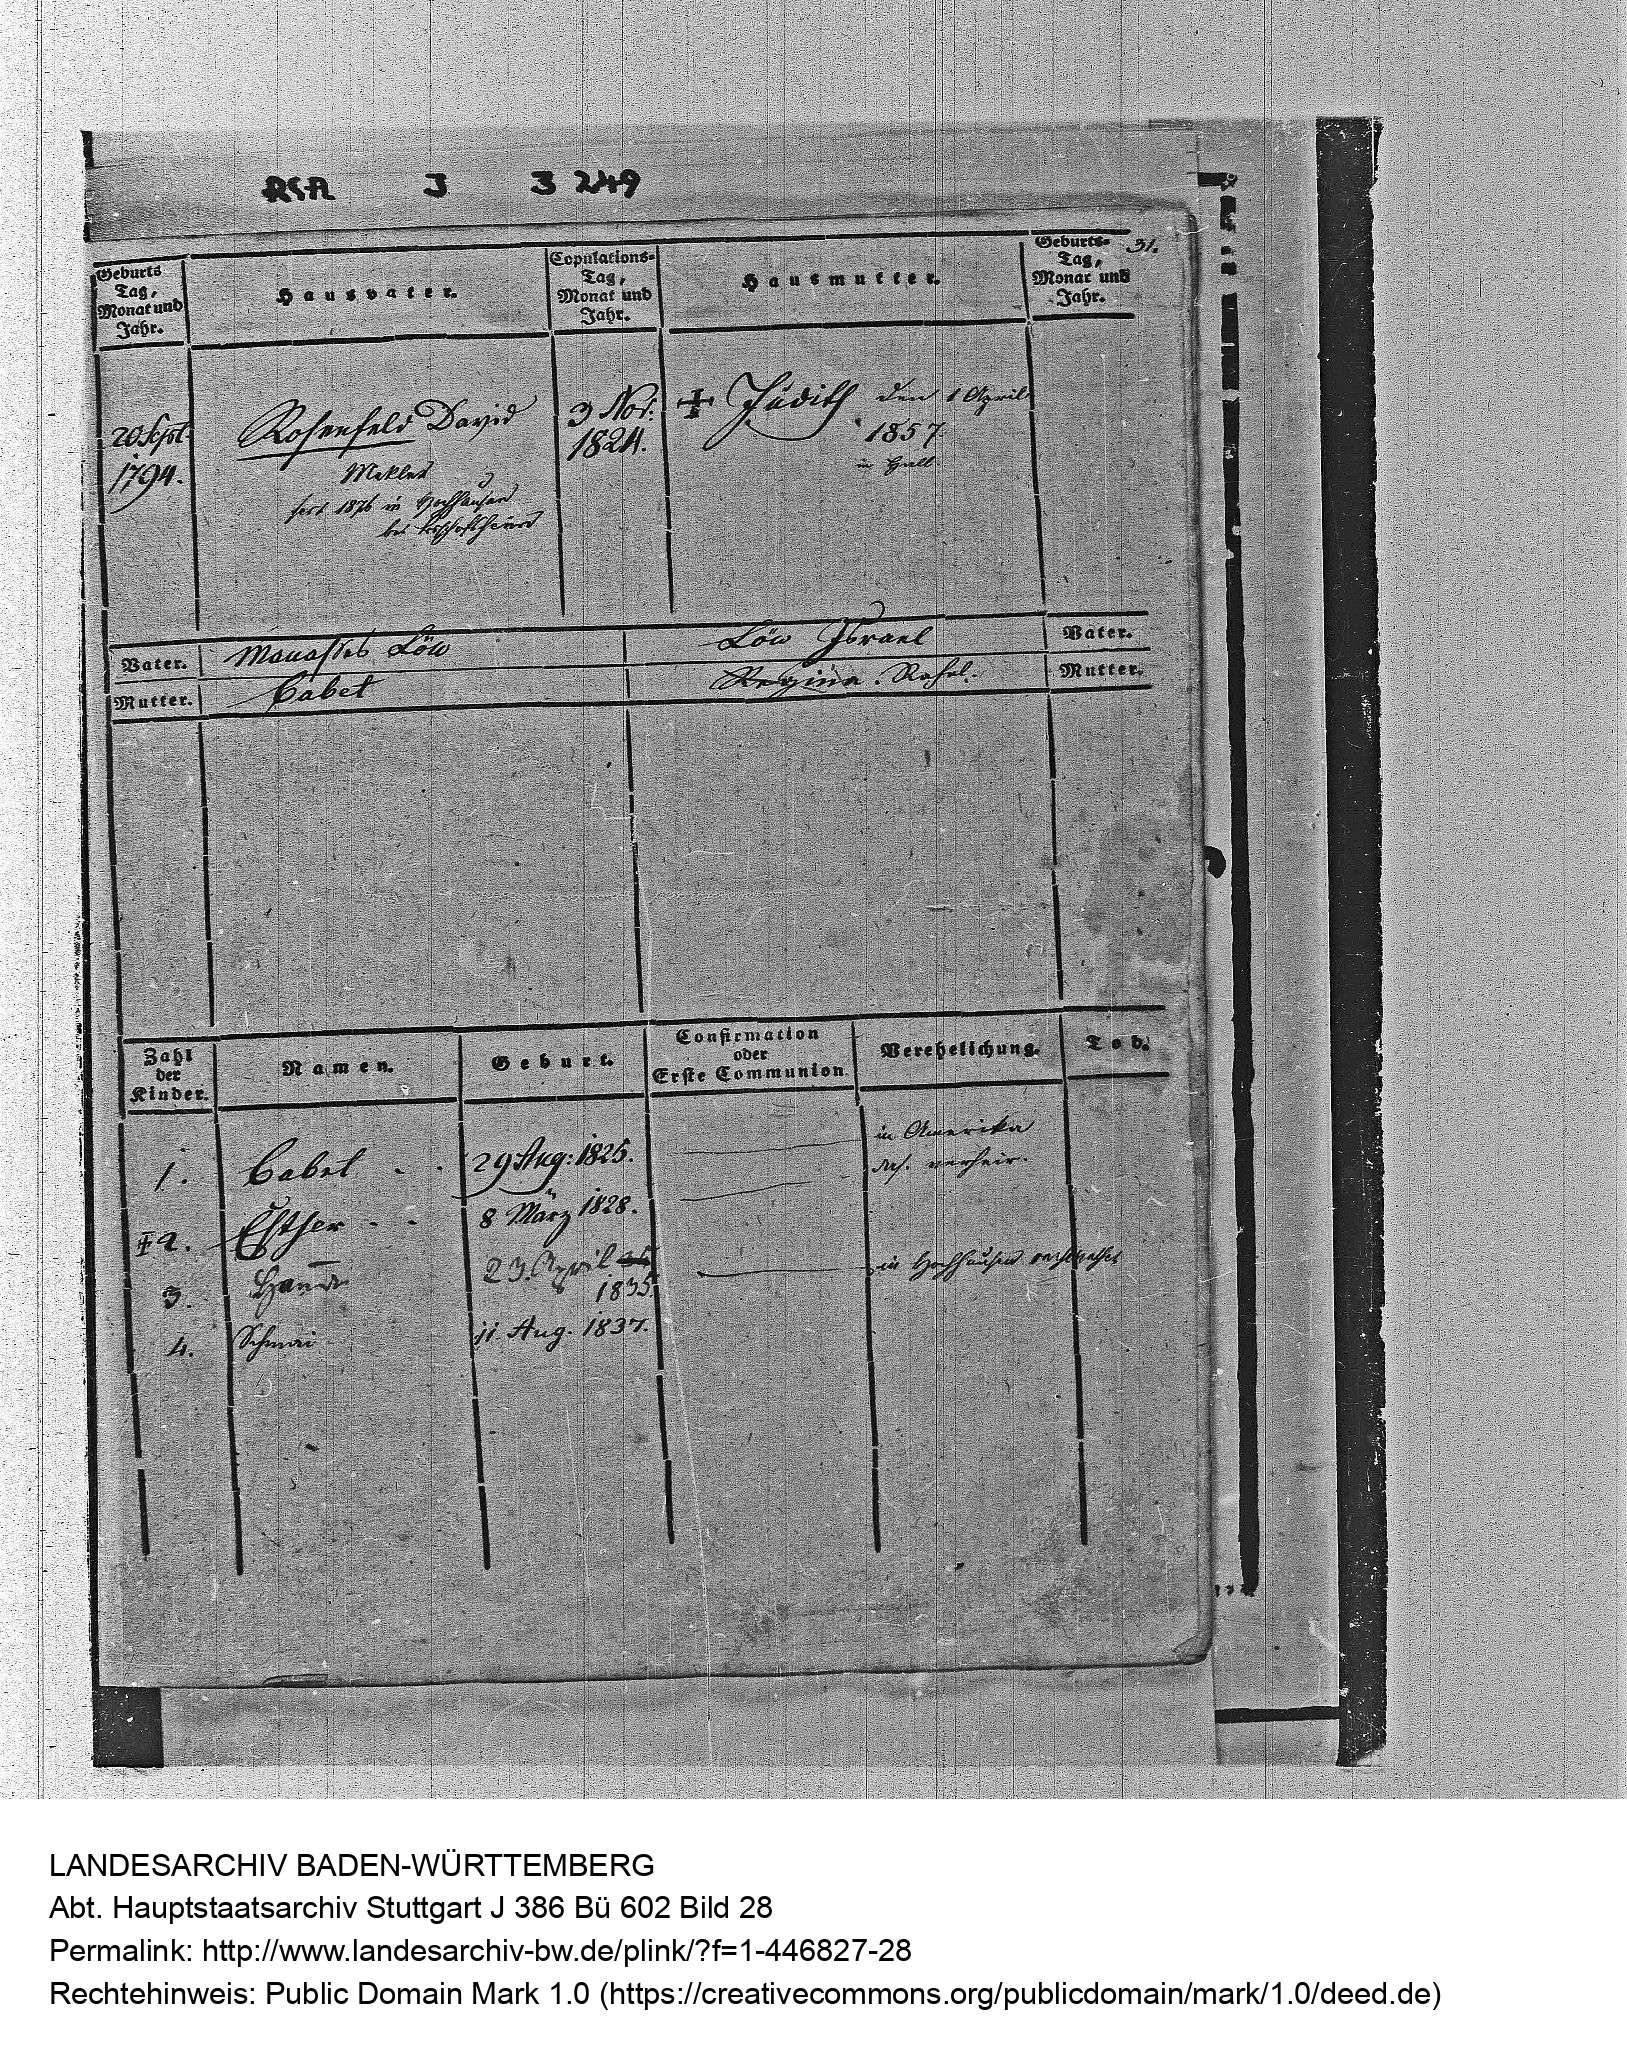 RSA J 3249
31.
Geburts
Tag,
Monat und
Jahr.
Hausvater.
Copulations-
Tag,
Monat und
Jahr.
Hausmutter.
Geburts-
Tag,
Monat und
Jahr.
20 Sept.
1794.
Rosenfeld David
Mekler
seit 1876 in Hochhausen
bei Bischofsheim
3 Nov.
1824.
Judith den 1 April
1857.
in Hall
Vater. Manasses Löw
Löw Israel Vater.
Mutter. Babet
Regina. Rahel. Mutter.
Zahl
der
Kinder.
Namen.
Geburt.
Confirmation
oder
Erste Communion.
Verehelichung.
Tod.
1. Babet 29 Aug: 1825. in Amerika
verheir.
2. Esther 8 März 1828.
3. 23. April
1835. in Hochhausen
4. 11 Aug. 1837.
LANDESARCHIV BADEN-WÜRTTEMBERG
Abt. Hauptstaatsarchiv Stuttgart J 386 Bü 602 Bild 28
Permalink: http://www.landesarchiv-bw.de/plink/?f=1-446827-28
Rechtehinweis: Public Domain Mark 1.0 (https://creativecommons.org/publicdomain/mark/1.0/deed.de)